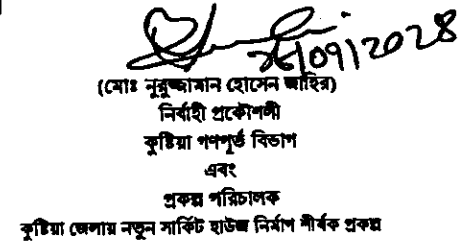 ২৬/০৭/২০২৪
(মোঃ নুরুজ্জামান হোসেন জাহির)
নির্বাহী প্রকৌশলী
কুষ্টিয়া গণপূর্ত বিভাগ
এবং
প্রকল্প পরিচালক
কুষ্টিয়া জেলায় নতুন সার্কিট হাউজ নির্মাণ শীর্ষক প্রকল্প